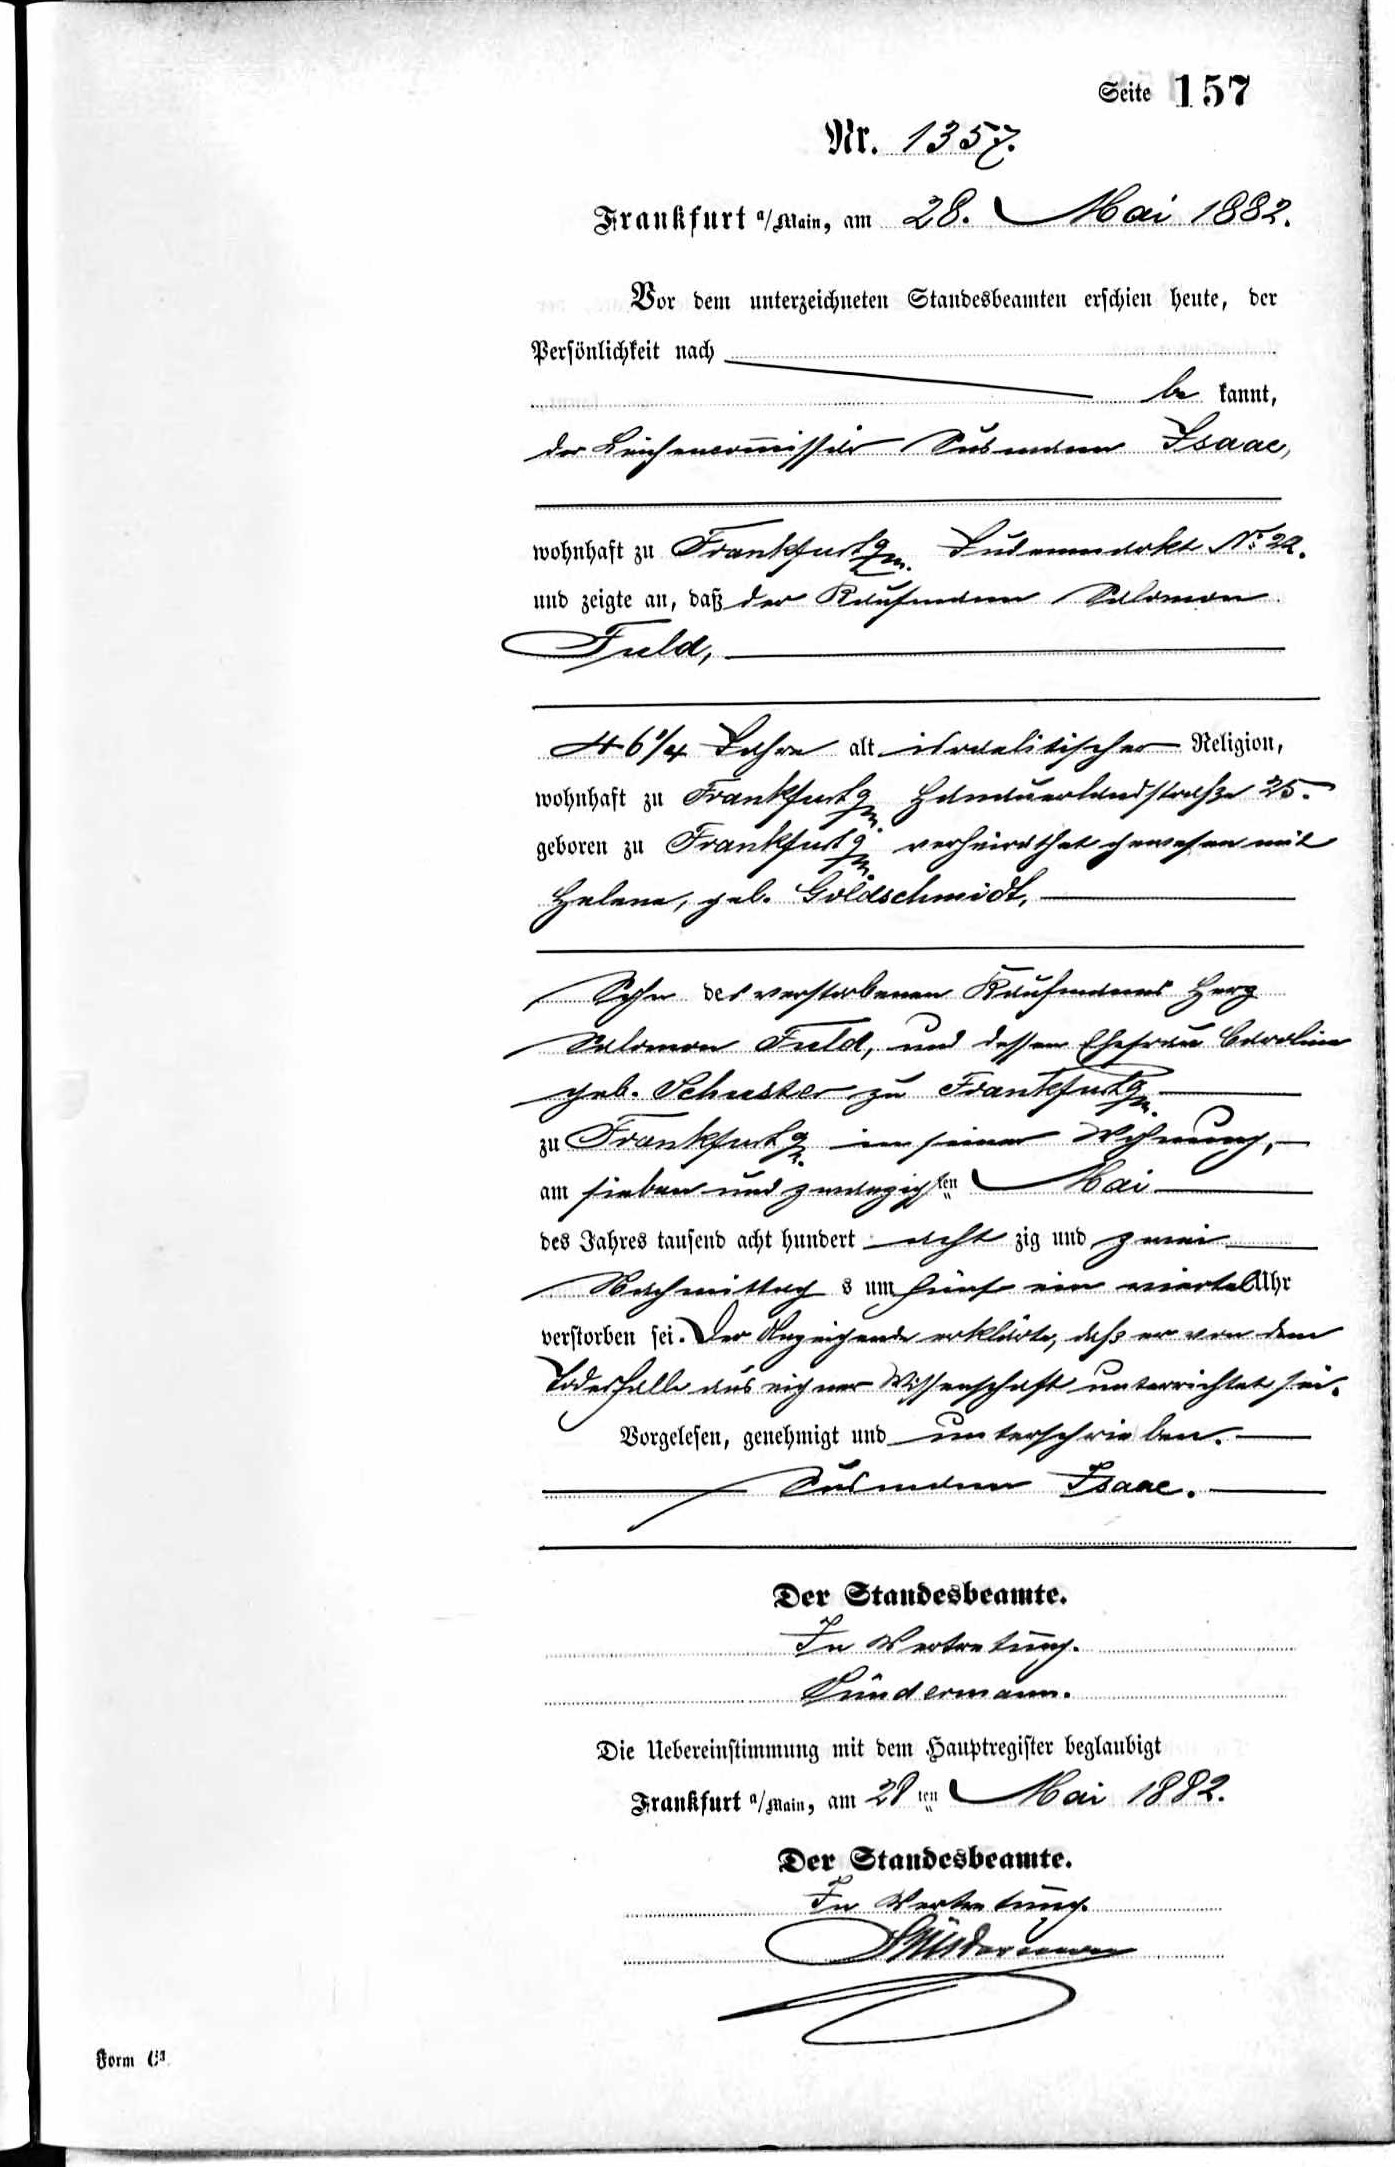 Seite 157
Nr. 1357.
Frankfurt a/Main, am 28. Mai 1882.
Vor dem unterzeichneten Standesbeamten erschien heute, der
Persönlichkeit nach
be kannt,
der Leichencommissär Susmann Isaac,
wohnhaft zu Frankfurt a/m. Judenmarkt No. 22.
und zeigte an, daß der Kaufmann Salomon
Fuld,
46 1/4 Jahre alt israelitischer Religion,
wohnhaft zu Frankfurt a/m. Hanauerlandstraße 25.
geboren zu Frankfurt a/m. verheirathet gewesen mit
Helene, geb. Goldschmidt,
Sohn des verstorbenen Kaufmanns Herz
Salomon Fuld, und dessen Ehefrau Caroline
geb. Schuster zu Frankfurt a/m.
zu Frankfurt a/m. in seiner Wohnung,
am sieben und zwanzigsten Mai
des Jahres tausend acht hundert acht zig und zwei
Nachmittag s um fünf ein viertel Uhr
verstorben sei. Der Anzeigende erklärte, daß er von dem
Todesfalle aus eigner Wissenschaft unterrichtet sei.
Vorgelesen, genehmigt und unterschrieben.
Susmann Isaac.
Der Standesbeamte.
In Vertretung.
Sündermann.
Die Uebereinstimmung mit dem Hauptregister beglaubigt
Frankfurt a/Main, am 28ten Mai 1882.
Der Standesbeamte.
In Vertretung.
Sündermann
Form C